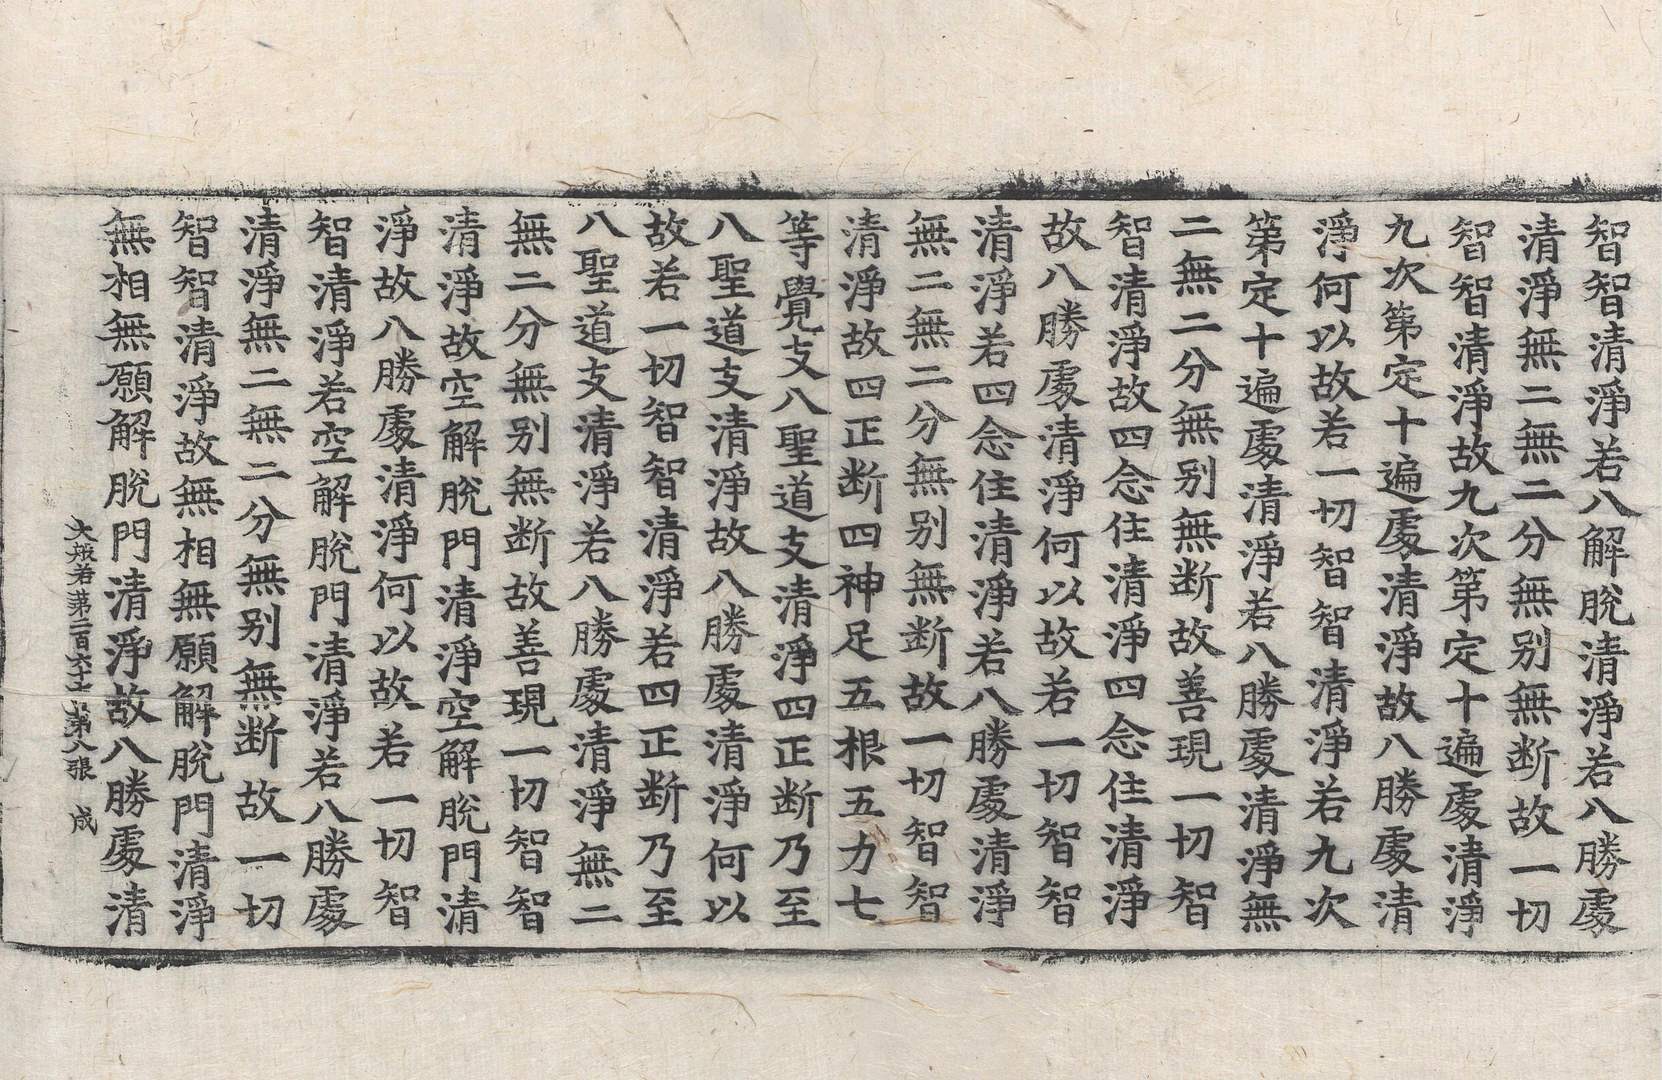 智智清淨若八解脫清淨若八勝處
清淨無二無二分無别無断故一切
智智清淨故九次第定十遍處清淨
九次第定十遍處清淨故八勝處清
淨何以故若一切智智清淨若九次
第定十遍處清淨若八勝處清淨無
二無二分無别無断故善現一切智
智清淨故四念住清淨四念住清淨
故八勝處清淨何以故若一切智智
清淨若四念住清淨若八勝處清淨
無二無二分無别無断故一切智智
清淨故四正断四神足五根五力七
等覺支八聖道支清淨四正断乃至
八聖道支清淨故八勝處清淨何以
故若一切智智清淨若四正断乃至
八聖道支清淨若八勝處清淨無二
無二分無别無断故善現一切智智
清淨故空解脫門清淨空解脫門清
淨故八勝處清淨何以故若一切智
智清淨若空解脫門清淨若八勝處
清淨無二無二分無别無断故一切
智智清淨故無相無願解脫門清淨
無相無願解脫門清淨故八勝處清
大般若第二百六十七 第八張 戍